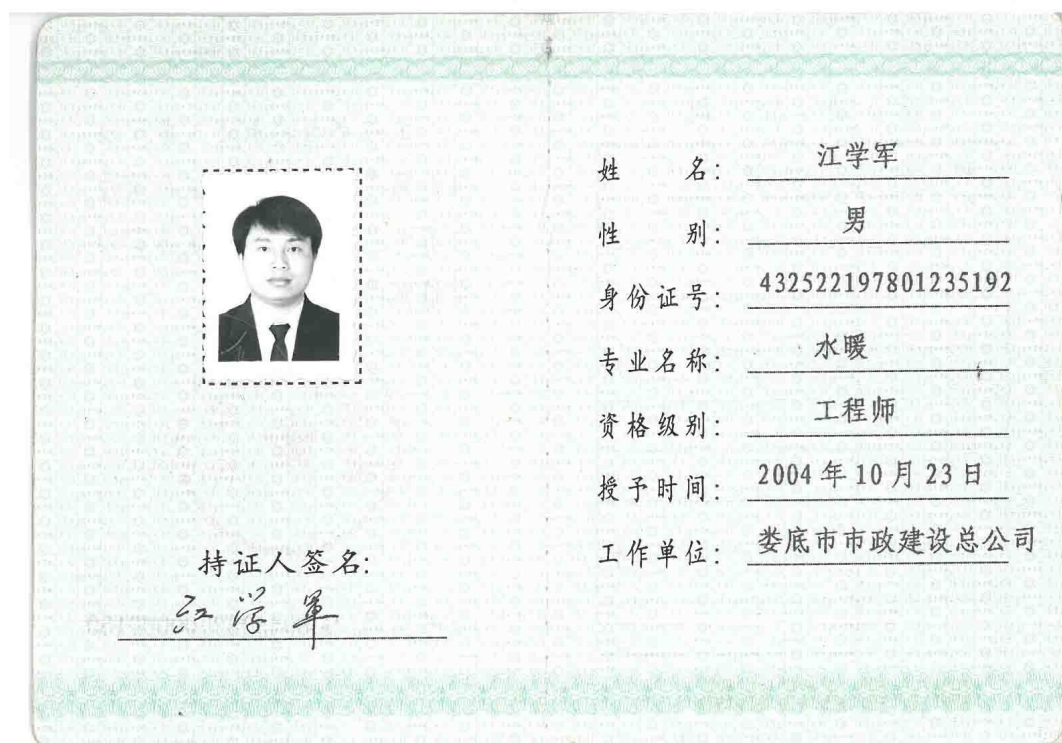 持证人签名:
江学军
姓 名: 江学军
性 别: 男
身份证号: 432522197801235192
专业名称: 水暖
资格级别: 工程师
授予时间: 2004 年 10 月 23 日
工作单位: 娄底市市政建设总公司